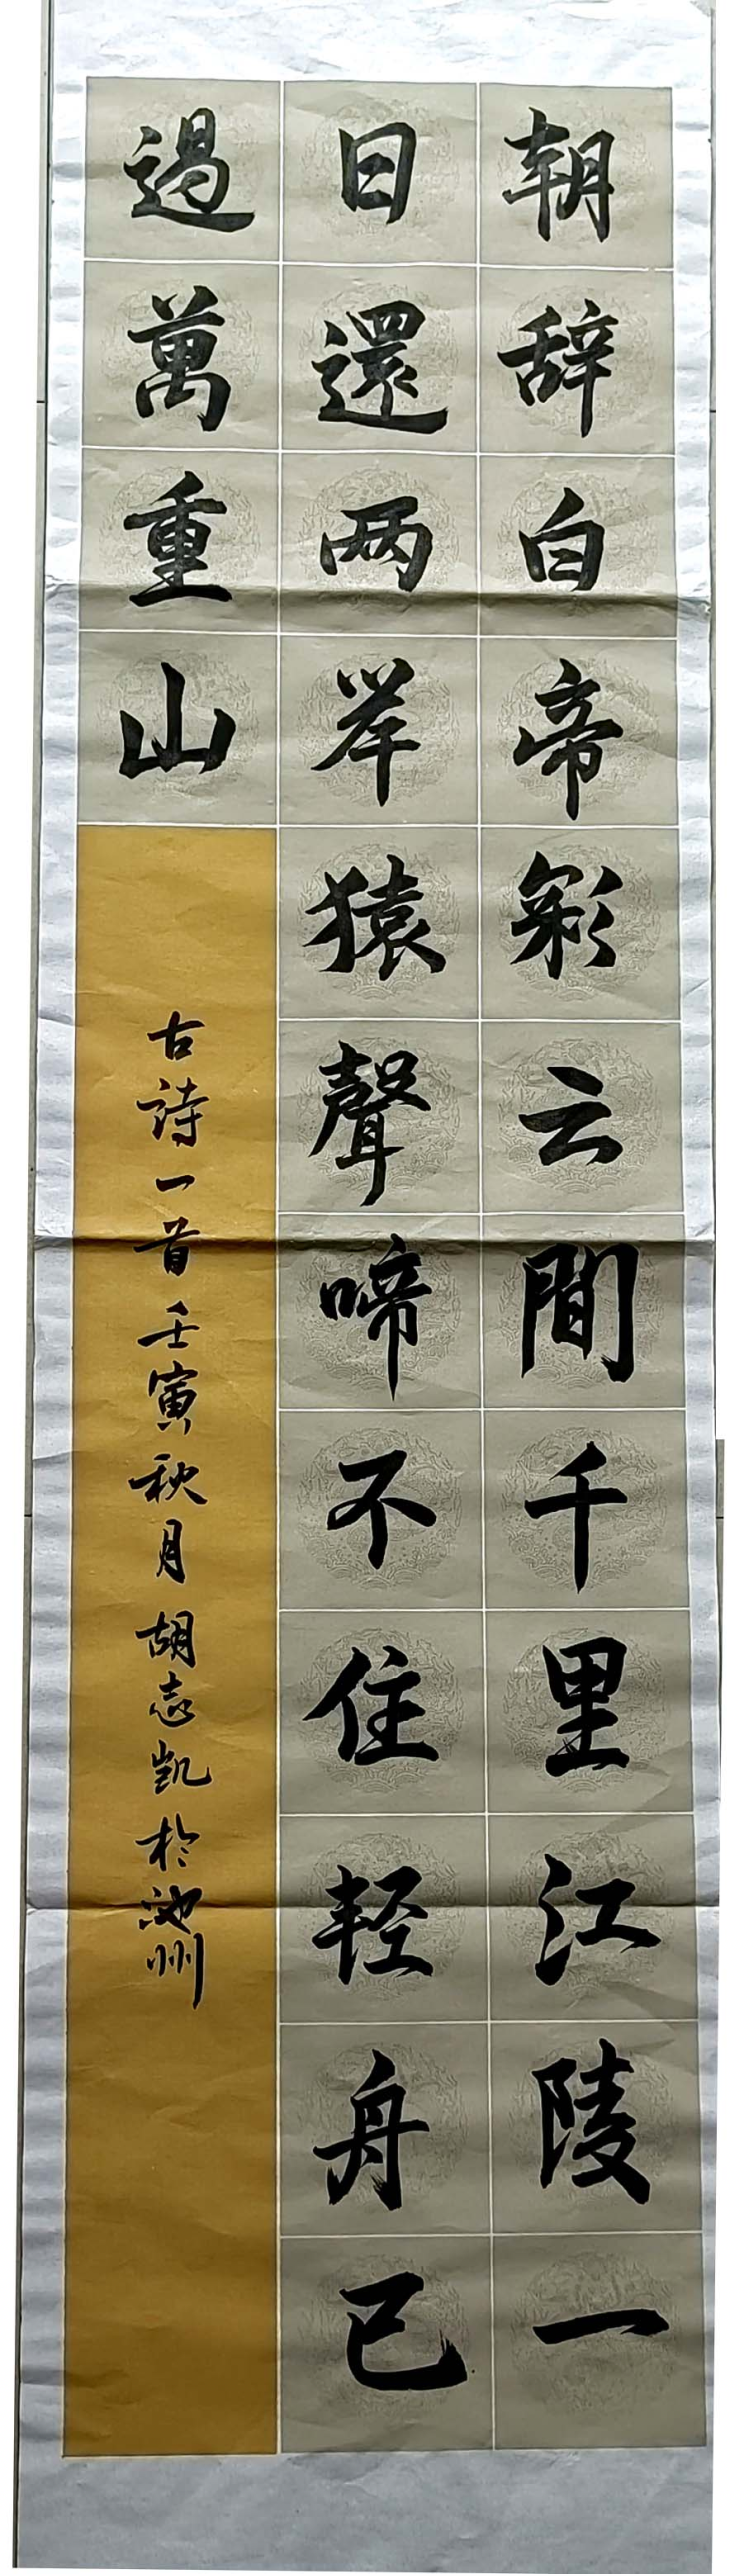 朝辞白帝彩云間千里江陵一
日還两岸猿聲啼不住輕舟已
過萬重山
古詩一首壬寅秋月胡志凱於池州